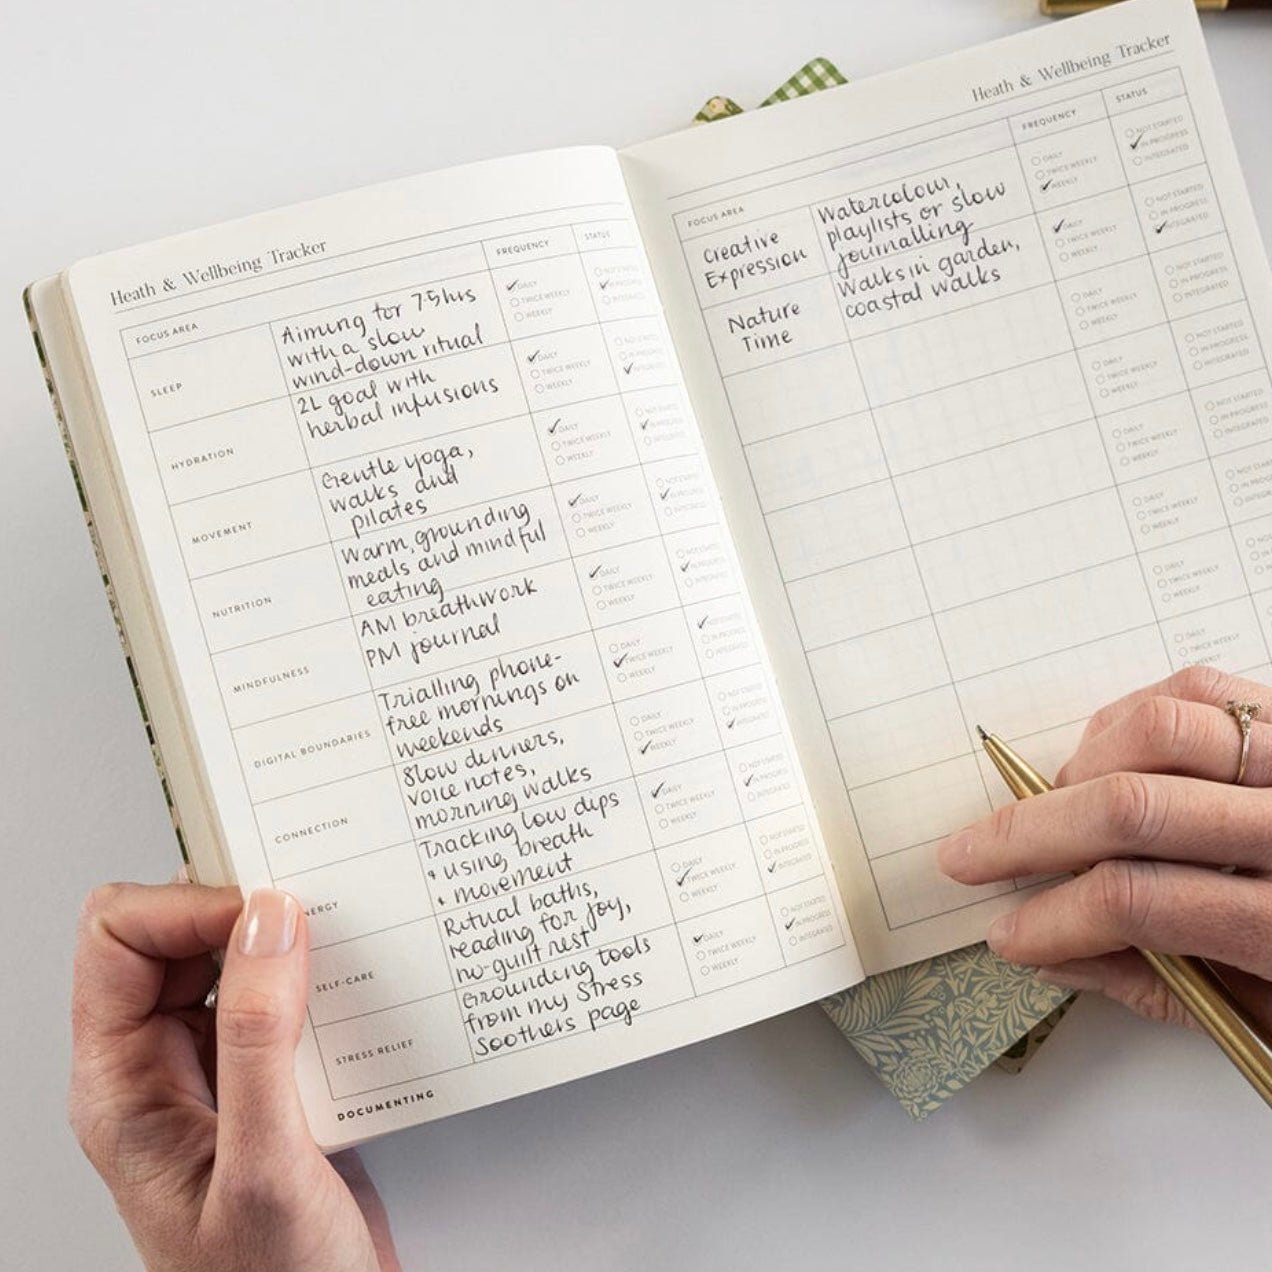 Heath & Wellbeing Tracker
FOCUS AREA
FREQUENCY
STATUS
SLEEP
Aiming for 7.5hrs
with a slow
wind-down ritual
DAILY
TWICE WEEKLY
WEEKLY
NOT STARTED
IN PROGRESS
INTEGRATED
HYDRATION
2L goal with
herbal infusions
DAILY
TWICE WEEKLY
WEEKLY
NOT STARTED
IN PROGRESS
INTEGRATED
MOVEMENT
Gentle yoga,
walks and
pilates
DAILY
TWICE WEEKLY
WEEKLY
NOT STARTED
IN PROGRESS
INTEGRATED
NUTRITION
Warm, grounding
meals and mindful
eating
DAILY
TWICE WEEKLY
WEEKLY
NOT STARTED
IN PROGRESS
INTEGRATED
MINDFULNESS
AM breathwork
PM journal
DAILY
TWICE WEEKLY
WEEKLY
NOT STARTED
IN PROGRESS
INTEGRATED
DIGITAL BOUNDARIES
Trialling phone-
free mornings on
weekends
DAILY
TWICE WEEKLY
WEEKLY
NOT STARTED
IN PROGRESS
INTEGRATED
CONNECTION
Slow dinners,
voice notes,
morning walks
DAILY
TWICE WEEKLY
WEEKLY
NOT STARTED
IN PROGRESS
INTEGRATED
NERGY
Tracking low dips
+ using breath
+ movement
DAILY
TWICE WEEKLY
WEEKLY
NOT STARTED
IN PROGRESS
INTEGRATED
SELF-CARE
Ritual baths,
reading for joy,
no-guilt rest
DAILY
TWICE WEEKLY
WEEKLY
NOT STARTED
IN PROGRESS
INTEGRATED
STRESS RELIEF
Grounding tools
from my Stress
Soothers page
DAILY
TWICE WEEKLY
WEEKLY
NOT STARTED
IN PROGRESS
INTEGRATED
DOCUMENTING
Heath & Wellbeing Tracker
FOCUS AREA
FREQUENCY
STATUS
Creative
Expression
Watercolour,
playlists or slow
journalling
DAILY
TWICE WEEKLY
WEEKLY
NOT STARTED
IN PROGRESS
INTEGRATED
Nature
Time
Walks in garden,
coastal walks
DAILY
TWICE WEEKLY
WEEKLY
NOT STARTED
IN PROGRESS
INTEGRATED
DAILY
TWICE WEEKLY
WEEKLY
NOT STARTED
IN PROGRESS
INTEGRATED
DAILY
TWICE WEEKLY
WEEKLY
NOT STARTED
IN PROGRESS
INTEGRATED
DAILY
TWICE WEEKLY
WEEKLY
NOT STARTED
IN PROGRESS
INTEGRATED
DAILY
TWICE WEEKLY
WEEKLY
DAILY
TWICE WEEKLY
WEEKLY
DAILY
TWICE WEEKLY
WEEKLY